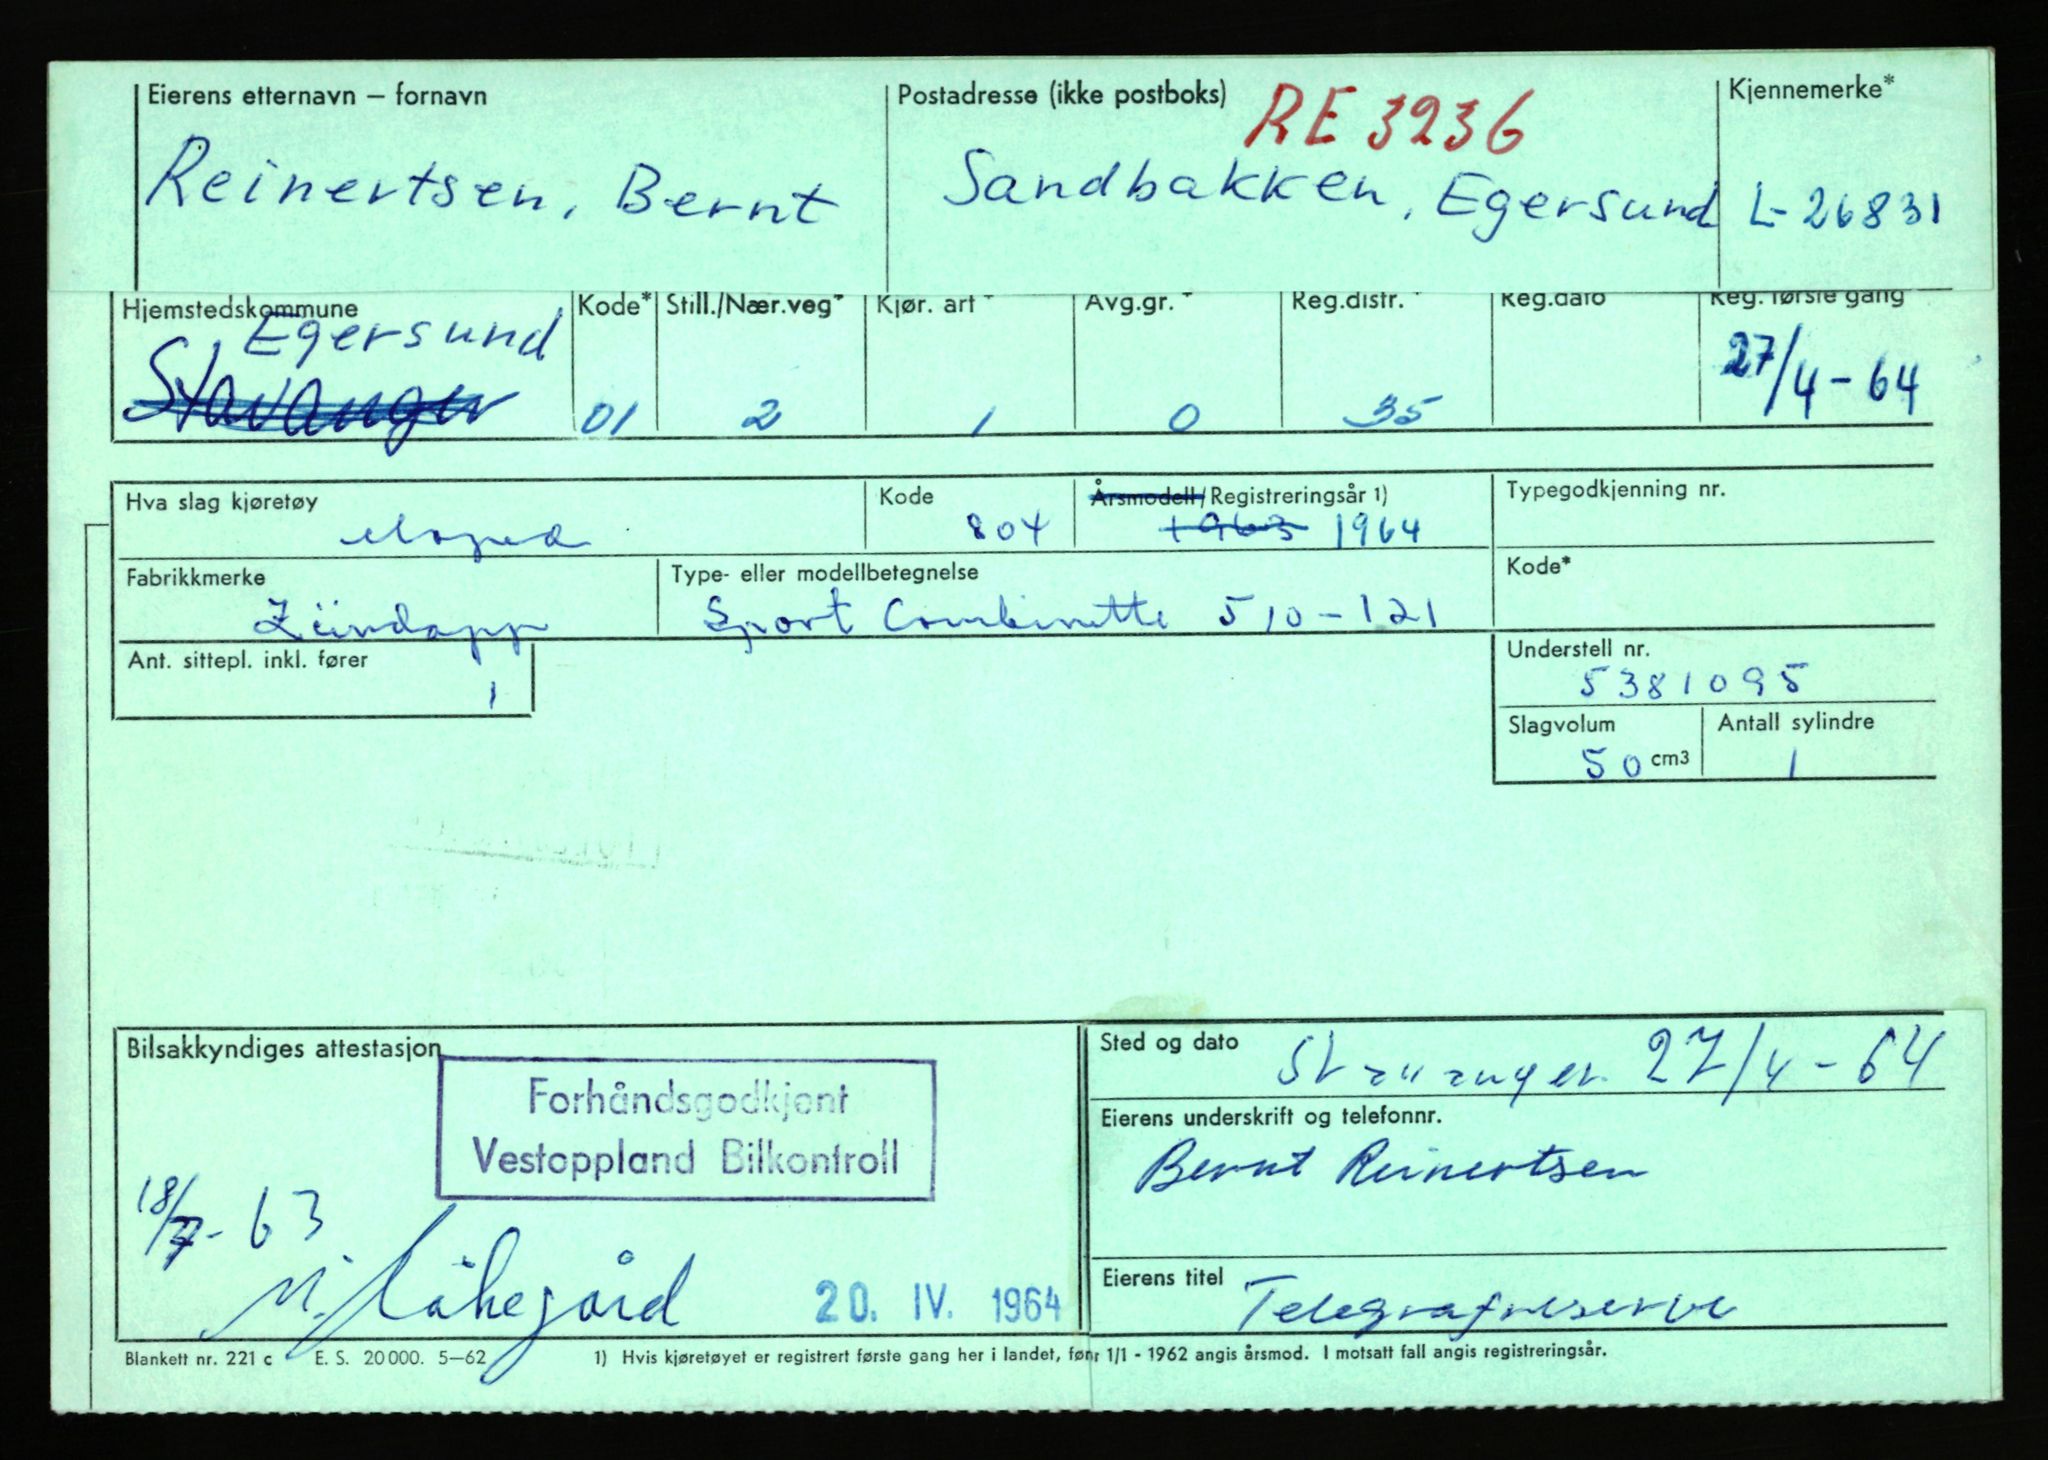 Eierens etternavn – fornavn
Reinertsen, Bernt
Postadresse (ikke postboks) RE 3236
Sandbakken, Egersund
Kjennemerke*
L-26831
Hjemstedskommune
Egersund
Stavanger
Kode*
01
Still./Nær.veg*
2
Kjør. art *
1
Avg.gr. *
0
Reg.distr. *
35
Reg.dato
Reg. første gang
27/4-64
Hva slag kjøretøy
Moped
Kode
804
Årsmodell/Registreringsår 1)
1963 1964
Typegodkjenning nr.
Fabrikkmerke
Zündapp
Type- eller modellbetegnelse
Sport Combinette 510-121
Kode*
Ant. sittepl. inkl. fører
1
Understell nr.
5381095
Slagvolum
50 cm3
Antall sylindre
1
Bilsakkyndiges attestasjon
Forhåndsgodkjent
Vestoppland Bilkontroll
18/7-63
20. IV. 1964
Sted og dato
Stavanger. 27/4-64
Eierens underskrift og telefonnr.
Bernt Reinertsen
Eierens titel
Blankett nr. 221 c E. S. 20 000. 5–62 1) Hvis kjøretøyet er registrert første gang her i landet, før 1/1 - 1962 angis årsmod. I motsatt fall angis registreringsår.